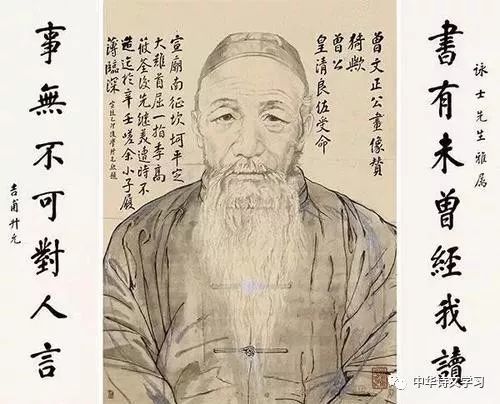 書有未曾經我讀
詠士先生雅属
曾文正公畫像贊
猗歟
曾公
皇清良佐受命
宣廟南征坎坷平定
大難首屈一指李高
後先継美遭時不
造迄於辛壬嗟余小子履
薄臨深
事無不可對人言
吉甫升允
中华诗文学习